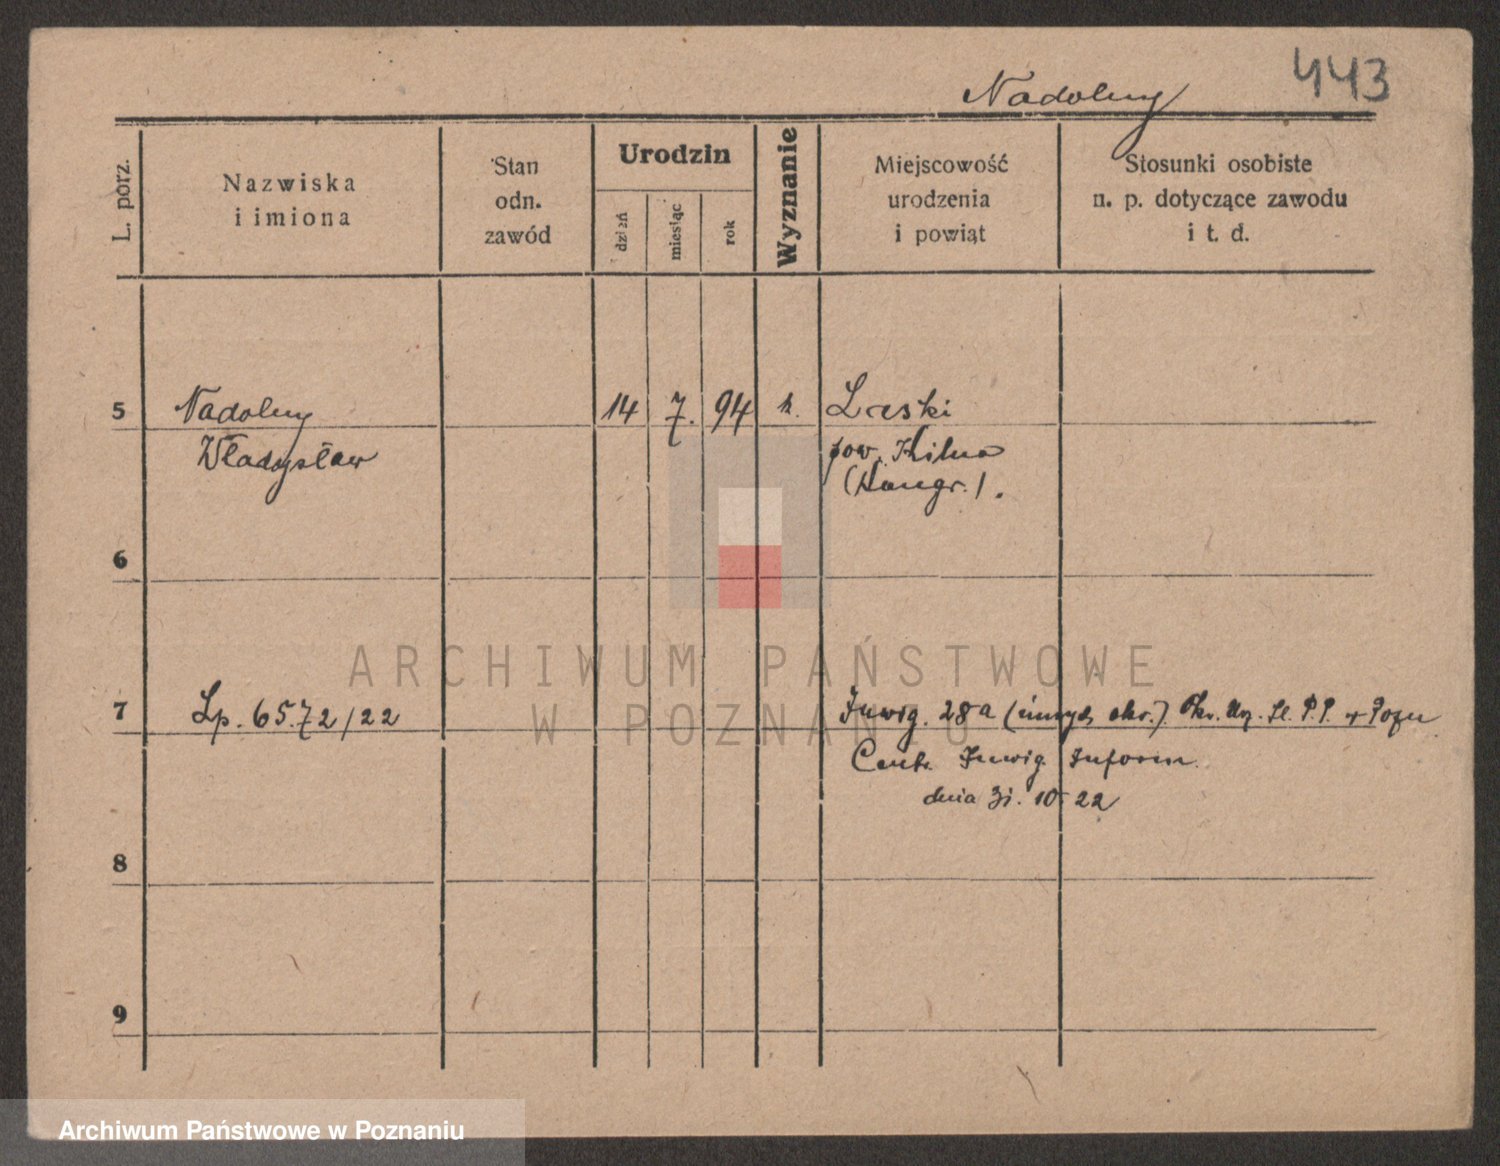 443
Nadolny
L. porz.
Nazwiska
i imiona
Stan
odn.
zawód
Urodzin
dzień
miesiąc
rok
Wyznanie
Miejscowość
urodzenia
i powiąt
Stosunki osobiste
n. p. dotyczące zawodu
i t. d.
5
Nadolny
14
7.
94
k.
Laski
Władysław
pow.
(Kongr.).
6
ARCHIWUM PAŃSTWOWE
W POZNANIU
7
Lp. 6572/22
Inwig. 28a
Inwig. Inform.
dnia 31. 10 22
8
9
Archiwum Państwowe w Poznaniu